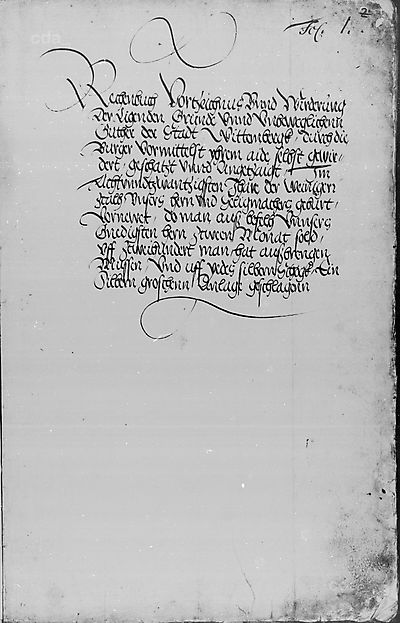 cda
2
Fol. 1.
Rechenbuch Vortzeichnus Vnnd Wirderung
der Ligenden Grunde Vnnd Vnbeweglichenn
Gutther der Stadt Wittenbergk, durch die
Burger Vormittelst yhrem aide selbst gewir-
dert, geschatzt Vnnd Angetzaigt, Im
Achtvndtzwantzigsten Jhare der Wenigern
Zcall Vnsers hern vnd Seligmachers geburt,
do man aus befehl Vnnsers
Gnedigsten hern Zween Monat sold,
vff Zweihundert man hat auffbrengen
Mussen, Vnd vff yedes silbern Schogk, Ein
Silbern groschenn Anlage geschlagenn